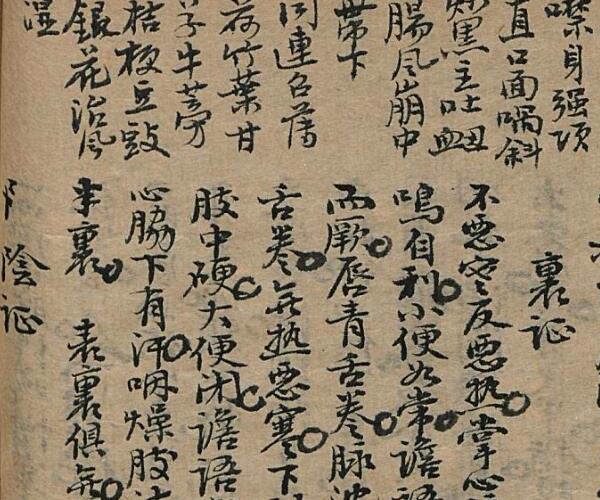 噤身强项
直口面喎斜
黑主吐衄
腸风崩中
带下
同連召薄
荷竹葉甘
子牛蒡
桔梗豆豉
銀花治风
湿
裏证
不恶寒反恶热掌心
鳴自利小便如常譫語
而厥唇青舌卷脉
舌卷无热恶寒下
肢中硬大便闭譫语
心脇下有汗咽燥肢
半裏 表裏俱无
陰证